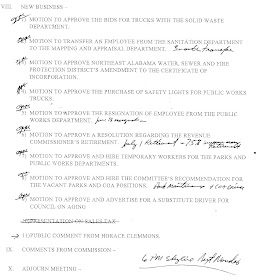 VIII. NEW BUSINESS –
MOTION TO APPROVE THE BIDS FOR TRUCKS WITH THE SOLID WASTE
DEPARTMENT.
MOTION TO TRANSFER AN EMPLOYEE FROM THE SANITATION DEPARTMENT
TO THE MAPPING AND APPRAISAL DEPARTMENT.
MOTION TO APPROVE NORTHEAST ALABAMA WATER, SEWER AND FIRE
PROTECTION DISTRICT'S AMENDMENT TO THE CERTIFICATE OF
INCORPORATION.
MOTION TO APPROVE THE PURCHASE OF SAFETY LIGHTS FOR PUBLIC WORKS
TRUCKS.
5) MOTION TO APPROVE THE RESIGNATION OF EMPLOYEE FROM THE PUBLIC
WORKS DEPARTMENT.
MOTION TO APPROVE A RESOLUTION REGARDING THE REVENUE
COMMISSIONER'S RETIREMENT. July 1
7) MOTION TO APPROVE AND HIRE TEMPORARY WORKERS FOR THE PARKS AND
PUBLIC WORKS DEPARTMENTS.
MOTION TO APPROVE AND HIRE THE COMMITTEE'S RECOMMENDATION FOR
THE VACANT PARKS AND COA POSITIONS. Park Maintenance
MOTION TO APPROVE AND ADVERTISE FOR A SUBSTITUTE DRIVER FOR
COUNCIL ON AGING
PRESENTATION ON SALES TAX
11) PUBLIC COMMENT FROM HORACE CLEMMONS.
IX. COMMENTS FROM COMMISSION –
X. ADJOURN MEETING –